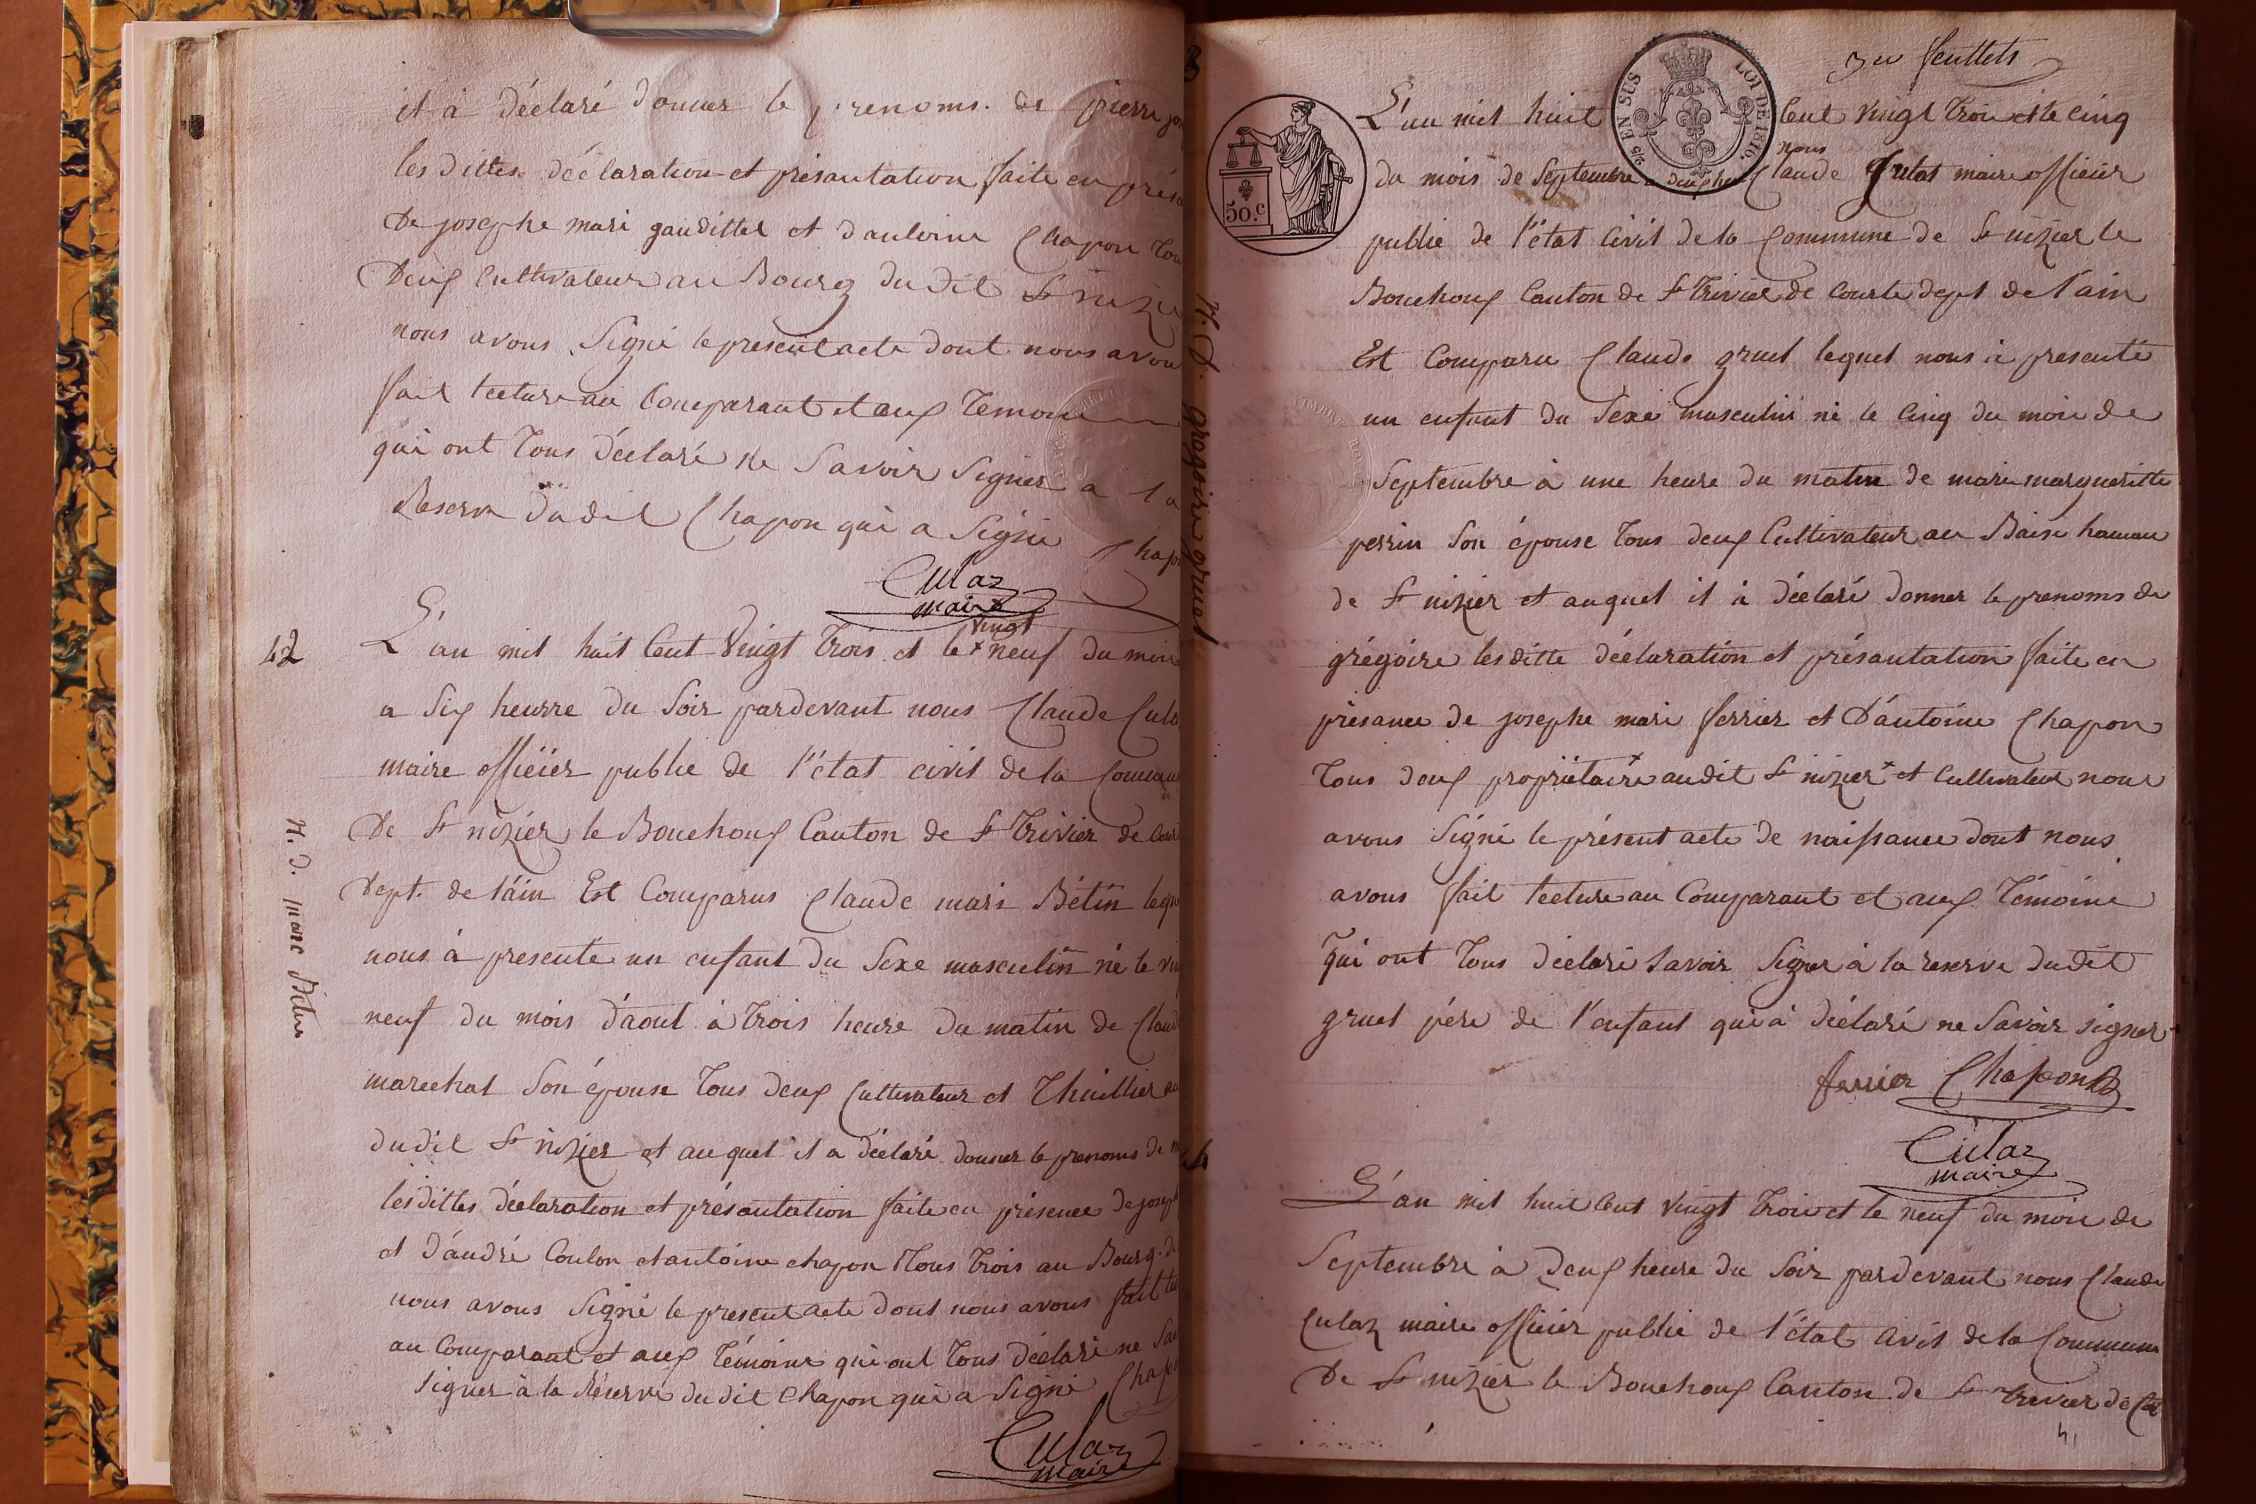 it à déclaré donner le prenoms. de pierre
les dittes déclaration et présantation faite en
De josephe mari gauditter et d'antoine Chapon
Deux Cultivateur au Bourg du dit St
nous avons Signé le present acte dont nous
fait lecture au Comparant et aux Temoin
qui ont Tous déclaré ne Savoir Signer a la
Reserve du dit Chapon qui a Signé
Culaz
maire
42
vingt
L'an mil huit Cent Vingt trois et le x neuf du
a Six heurre du Soir pardevant nous Claude
maire officier public de l'état civil de la
De St nizier le Bouchoux Canton de St Trivier de
Dept. de l'ain Est Comparus Claude mari Bétin
nous à presente un enfant du Sexe masculin né le
neuf du mois d'aout à trois heure du matin de
marechal Son épouse Tous deux Cultivateur et Thuillier
du dit St nizier et au quel il a déclaré donner le prenoms de
les dittes déclaration et présantation faite en présence de
et D'andré Coulon et antoine chapon Tous trois au Bourg. de
nous avons Signé le present acte dont nous avons fait
au Comparant et aux Témoins qui ont Tous déclaré ne
signer à la Réserve du dit Chapon qui a Signé
Culaz
maire
N. d. marc Bétin
N. d. grégoire gruel
3e feuillets
25 EN SUS
LOI DE 1816.
50.c
L'an mil huit Cent vingt trois et le cinq
nous
du mois de Septembre a deux heure Claude Culas maire officier
public de l'état Civil de la Commune de St nizier le
Bouchoux Canton de St Trivier de Courte dept de l'ain
Est Comparu Claude gruel lequel nous à presenté
un enfant du Sexe masculin né le Cinq du mois de
Septembre à une heure du matin de mari margueritte
perrin Son épouse Tous deux Cultivateur au Baise hameau
de St nizier et auquel il à déclaré donner le prenoms de
grégoire les ditte déclaration et présantation faite en
présance de josephe mari ferrier et D'antoine Chapon
Tous deux propriétaire x au dit St nizier x et Cultivateur nous
avons Signé le présent acte de naissance dont nous
avons fait lecture au Comparant et aux Témoins
qui ont Tous déclaré Savoir Signer à la reserve du dit
gruel pére de l'enfant qui à déclaré ne Savoir signer
ferrier Chapon
Culaz
maire
L'an mil huit Cent vingt trois et le neuf du mois de
Septembre à Deux heure du Soir pardevant nous Claude
Culaz maire officier public de l'état civil de la Commune
De St nizier le Bouchoux Canton de St trivier de